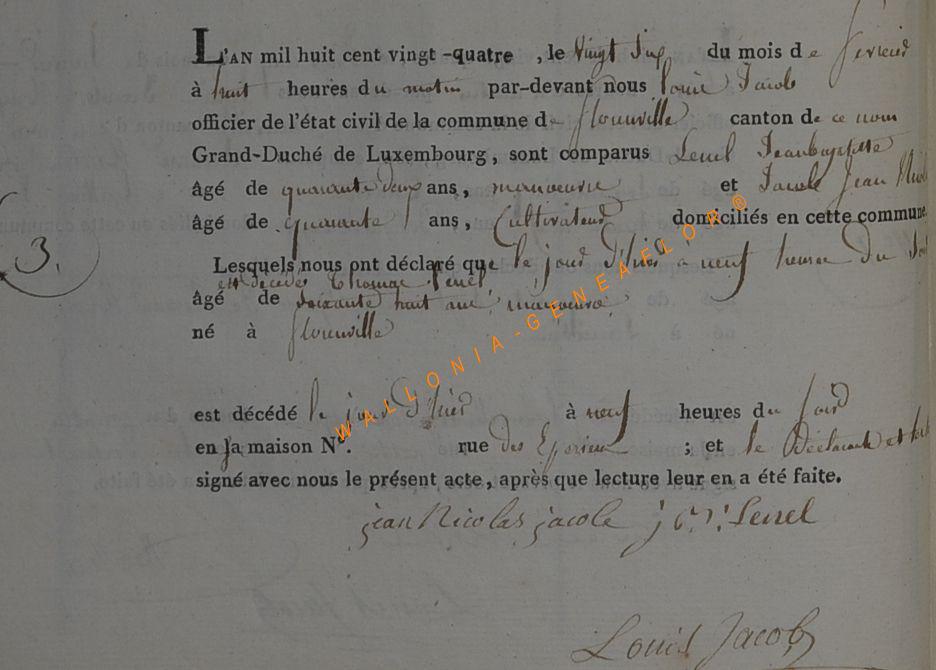 L'AN mil huit cent vingt-quatre, le vingt six du mois de fevrier
à huit heures du matin par-devant nous louis Jacob
officier de l'état civil de la commune de florenville canton de ce nom
Grand-Duché de Luxembourg, sont comparus Lenel Jeanbaptiste
âgé de quarante deux ans, manoeuvre et Jacob Jean
âgé de quarante ans, Cultivateur domiciliés en cette commune
3.
Lesquels nous ont déclaré que le jour d'hier a neuf heures du soir
est décédé thomas Lenel
âgé de soixante huit ans, manoeuvre
né à florenville
est décédé le jour d'hier à neuf heures du soir
en la maison N°. rue des ; et le Déclarants et
signé avec nous le présent acte, après que lecture leur en a été faite.
jean Nicolas jacole j Lenel
Louis Jacob
WALLONIA-GENEAELOR®